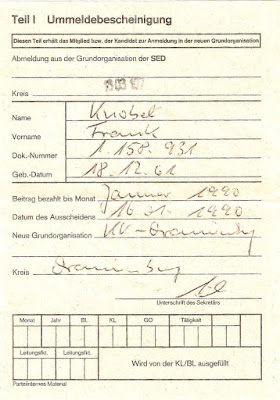 Teil I Ummeldebescheinigung
Diesen Teil erhält das Mitglied bzw. der Kandidat zur Anmeldung in der neuen Grundorganisation
Abmeldung aus der Grundorganisation der SED
Kreis
Name Knobel
Vorname Frank
Dok.-Nummer 1.158.931
Geb.-Datum 18.12.61
Beitrag bezahlt bis Monat Januar 1990
Datum des Ausscheidens 16 01. 1990
Neue Grundorganisation KV-Oranienbg
Kreis Oranienburg
Unterschrift des Sekretärs
Monat Jahr BL KL GO Tätigkeit
Leitungsfkt. Leitungsfkt. Wird von der KL/BL ausgefüllt
Parteiinternes Material